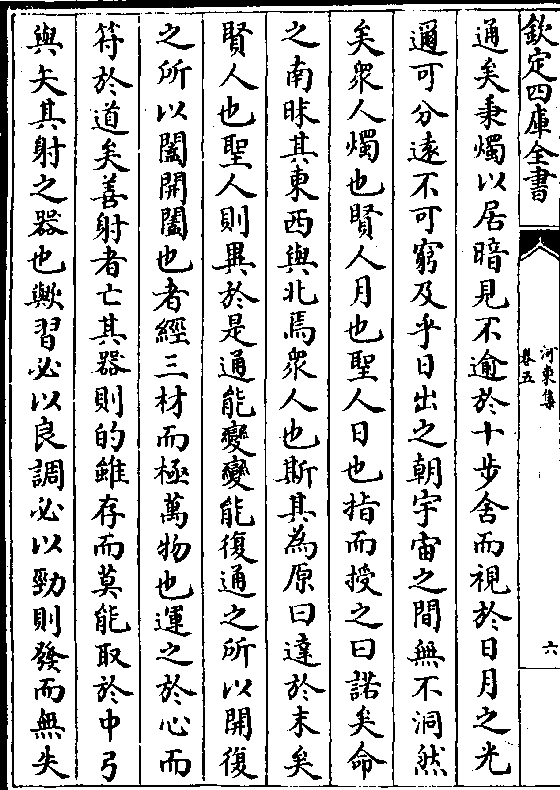 欽定四庫全書
河東集
卷五
六
通矣秉燭以居暗見不逾於十步舍而視於日月之光
邇可分遠不可窮及乎日出之朝宇宙之間無不洞然
矣衆人燭也賢人月也聖人日也指而授之曰諾矣命
之南昧其東西與北焉衆人也斯其為原曰達於末矣
賢人也聖人則異於是通能變變能復通之所以開復
之所以闔開闔也者經三材而極萬物也運之於心而
符於道矣善射者亡其器則的雖存而莫能取於中弓
與矢其射之器也歟習必以良調必以勁則發而無失